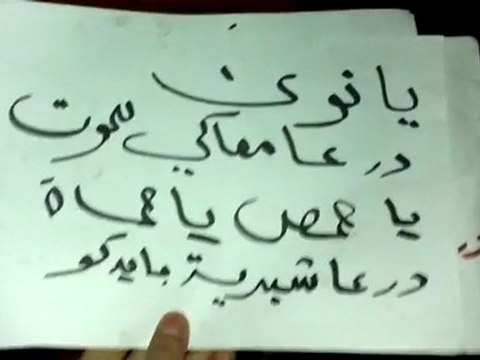 يا نوى
درعا معاكي للموت
يا حمص يا حماة
درعا شبدية بايدكو